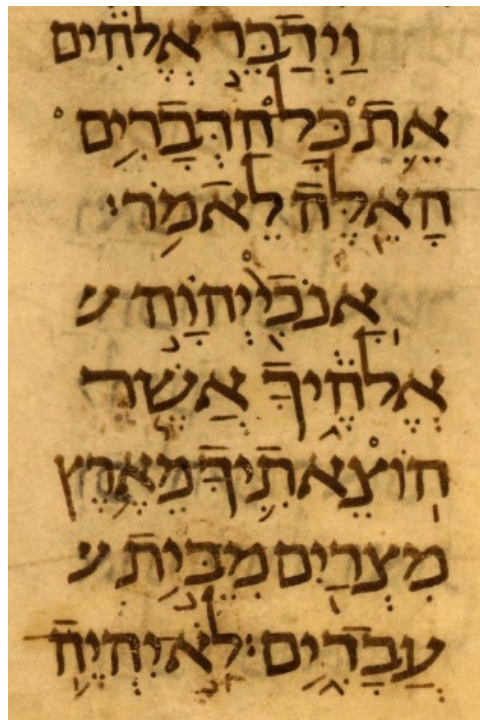 וַיְדַבֵּר אֱלֹהִים
אֵת כָּל הַדְּבָרִים
הָאֵלֶּה לֵאמֹר׃
אָנֹכִי יְהוָה
אֱלֹהֶיךָ אֲשֶׁר
הוֹצֵאתִיךָ מֵאֶרֶץ
מִצְרַיִם מִבֵּית
עֲבָדִים׃ לֹא יִהְיֶה